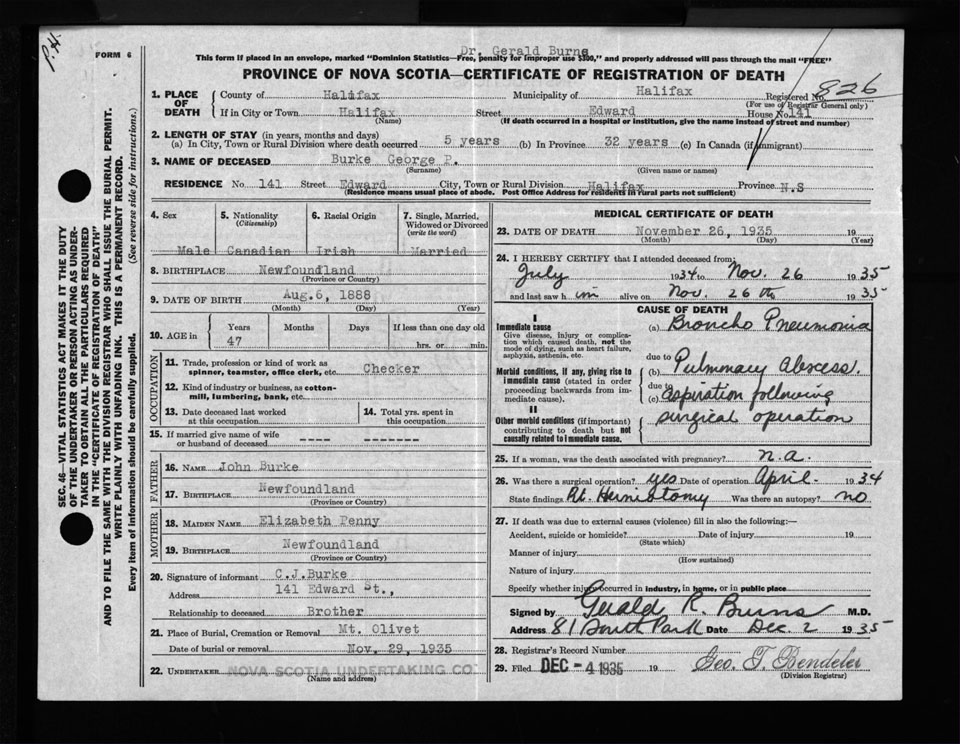 P.H.
FORM 6
Dr. Gerald Burns
This form if placed in an envelope, marked "Dominion Statistics—Free, penalty for improper use $300," and properly addressed will pass through the mail "FREE"
PROVINCE OF NOVA SCOTIA—CERTIFICATE OF REGISTRATION OF DEATH
1. PLACE OF DEATH
County of Halifax Municipality of Halifax Registered No. 826
(For use of Registrar General only)
If in City or Town Halifax Street Edward House No. 141
(Name) (If death occurred in a hospital or institution, give the name instead of street and number)
2. LENGTH OF STAY (in years, months and days)
(a) In City, Town or Rural Division where death occurred 5 years (b) In Province 32 years (c) In Canada (if immigrant)
3. NAME OF DECEASED Burke George P.
(Surname) (Given name or names)
RESIDENCE No. 141 Street Edward City, Town or Rural Division Halifax Province N.S
(Residence means usual place of abode. Post Office Address for residents in rural parts not sufficient)
4. Sex Male
5. Nationality (Citizenship) Canadian
6. Racial Origin Irish
7. Single, Married, Widowed or Divorced (write the word) Married
8. BIRTHPLACE Newfoundland
(Province or Country)
9. DATE OF BIRTH Aug. 6, 1888
(Month) (Day) (Year)
10. AGE in Years 47 Months Days If less than one day old hrs. or min.
OCCUPATION
11. Trade, profession or kind of work as spinner, teamster, office clerk, etc. Checker
12. Kind of industry or business, as cotton-mill, lumbering, bank, etc.
13. Date deceased last worked at this occupation
14. Total yrs. spent in this occupation
15. If married give name of wife or husband of deceased ---- -----
FATHER
16. NAME John Burke
17. BIRTHPLACE Newfoundland
(Province or Country)
MOTHER
18. MAIDEN NAME Elizabeth Penny
19. BIRTHPLACE Newfoundland
(Province or Country)
20. Signature of informant C.J.Burke
Address 141 Edward St.,
Relationship to deceased Brother
21. Place of Burial, Cremation or Removal Mt. Olivet
Date of burial or removal Nov. 29, 1935
22. UNDERTAKER NOVA SCOTIA UNDERTAKING CO.
(Name and address)
MEDICAL CERTIFICATE OF DEATH
23. DATE OF DEATH November 26, 1935 19
(Month) (Day) (Year)
24. I HEREBY CERTIFY that I attended deceased from;
July 1934 to Nov. 26 1935
and last saw him alive on Nov. 26th 1935
CAUSE OF DEATH
I
Immediate cause
Give disease, injury or complication which caused death, not the mode of dying, such as heart failure, asphyxia, asthenia, etc.
(a) Broncho Pneumonia
due to
Morbid conditions, if any, giving rise to immediate cause (stated in order proceeding backwards from immediate cause).
(b) Pulmonary Abscess.
due to
(c) aspiration following
II
Other morbid conditions (if important) contributing to death but not causally related to immediate cause.
surgical operation
25. If a woman, was the death associated with pregnancy? n.a.
26. Was there a surgical operation? yes Date of operation April- 1934
State findings Rt. Herniotomy Was there an autopsy? no
27. If death was due to external causes (violence) fill in also the following:—
Accident, suicide or homicide? Date of injury 19
(State which)
Manner of injury
(How sustained)
Nature of injury
Specify whether injury occurred in industry, in home, or in public place
Signed by Gerald R. Burns M.D.
Address 81 South Park Date Dec. 2 1935
28. Registrar's Record Number
29. Filed DEC - 4 1935 19 Geo. T. Bendeler
(Division Registrar)
SEC. 46—VITAL STATISTICS ACT MAKES IT THE DUTY
OF THE UNDERTAKER OR PERSON ACTING AS UNDER-
TAKER TO OBTAIN ALL THE PARTICULARS REQUIRED
IN THE "CERTIFICATE OF REGISTRATION OF DEATH"
AND TO FILE THE SAME WITH THE DIVISION REGISTRAR WHO SHALL ISSUE THE BURIAL PERMIT.
WRITE PLAINLY WITH UNFADING INK. THIS IS A PERMANENT RECORD.
Every item of information should be carefully supplied. (See reverse side for instructions.)